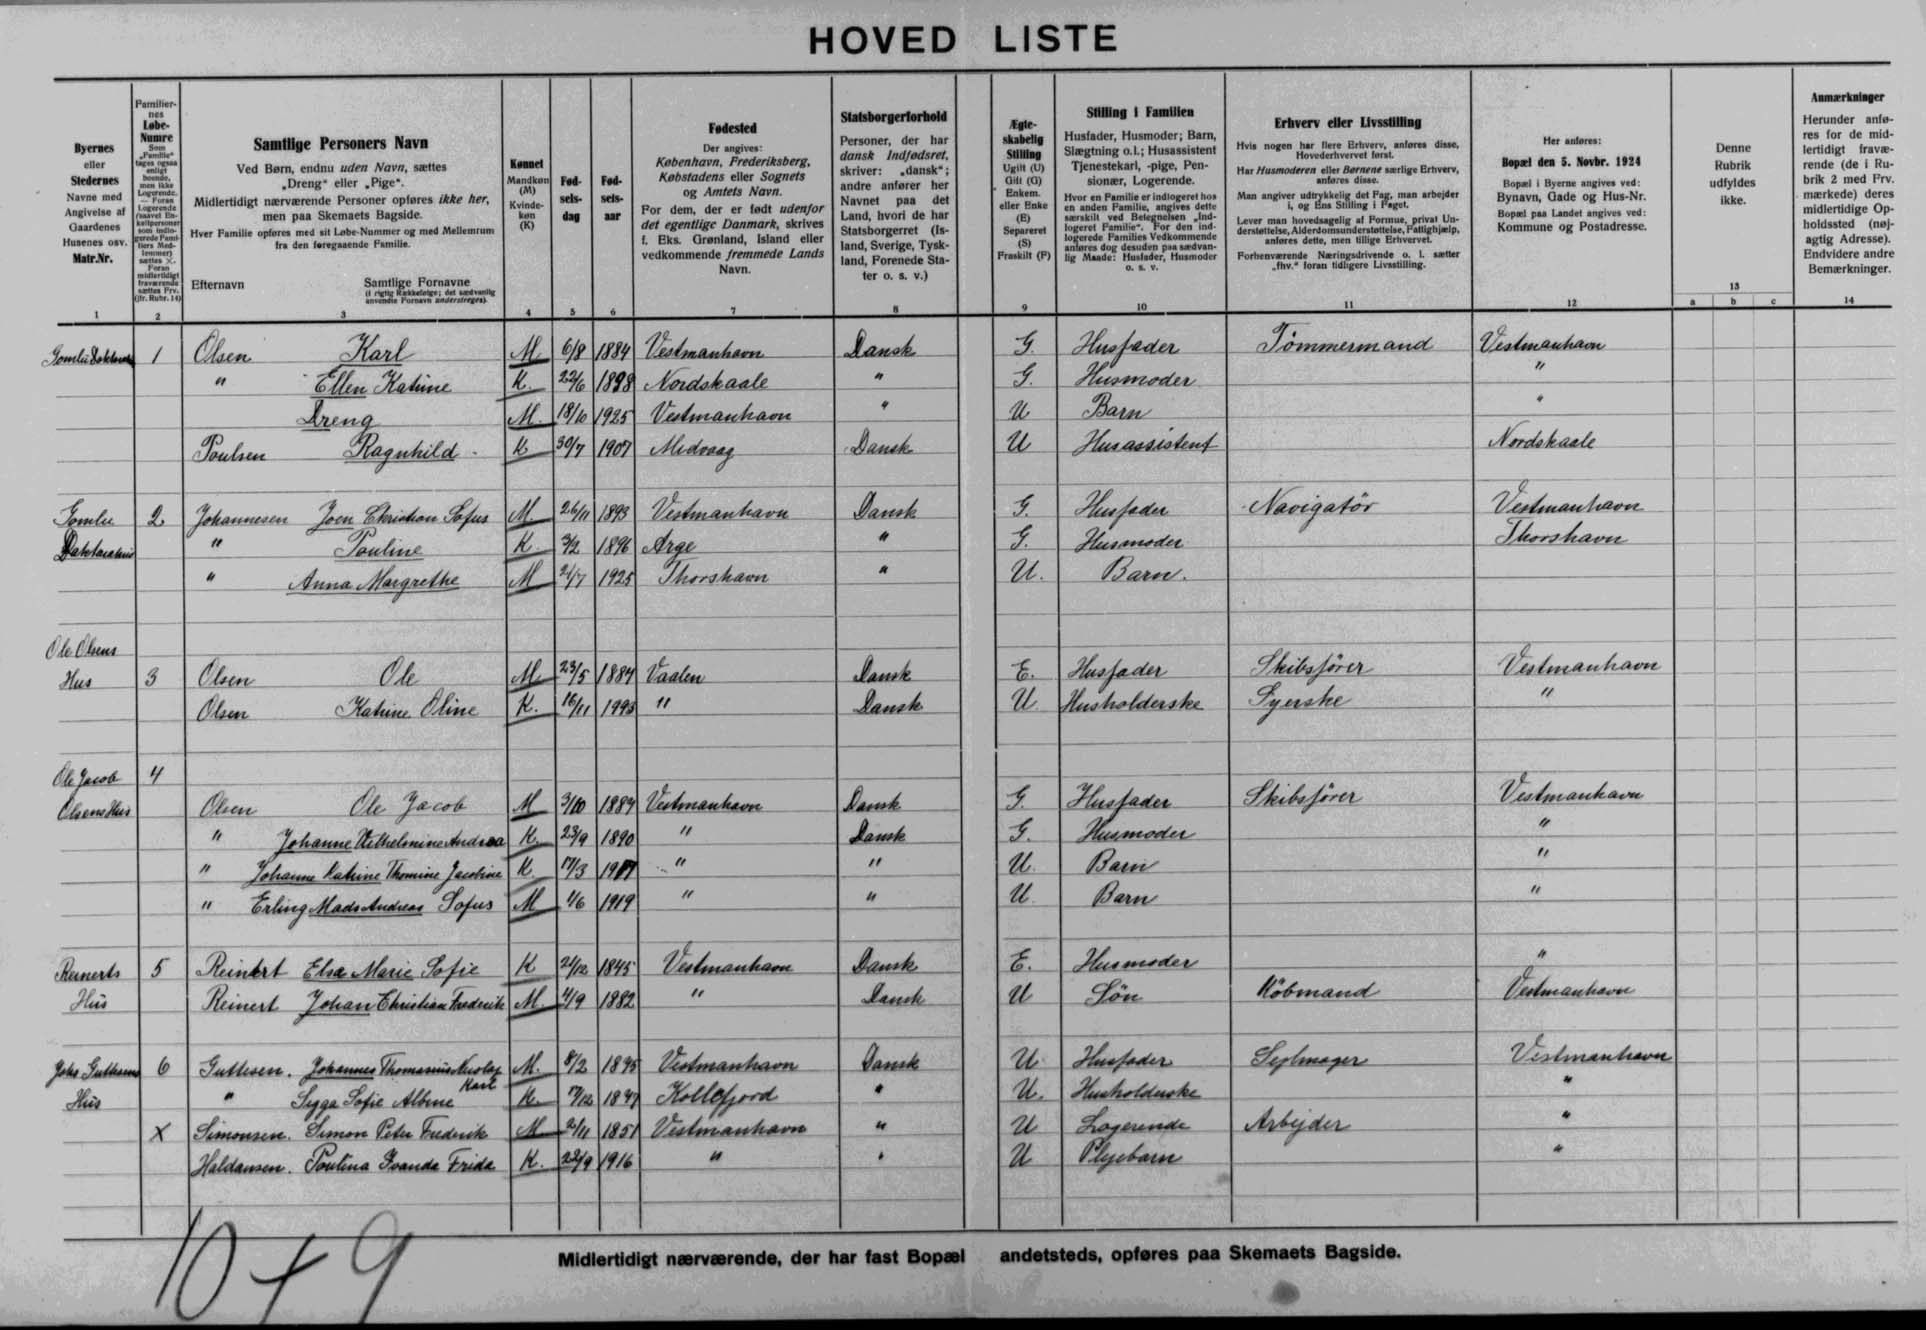 HOVED LISTE
Byernes eller Stedernes Navne med Angivelse af Gaardenes Husenes osv. Matr.Nr.
Familiernes Løbe-Numre Som „Familie“ tages ogsaa enligt boende, men ikke Logerende. — Foran Logerende (saavel Enkeltpersoner som indlogerede Familiers Medlemmer) sættes ×. Foran midlertidigt fraværende sættes Frv. (jfr. Rubr. 14)
Samtlige Personers Navn
Ved Børn, endnu uden Navn, sættes „Dreng“ eller „Pige“.
Midlertidigt nærværende Personer opføres ikke her, men paa Skemaets Bagside.
Hver Familie opføres med sit Løbe-Nummer og med Mellemrum fra den foregaaende Familie.
Efternavn Samtlige Fornavne
(i rigtig Rækkefølge; det sædvanlig anvendte Fornavn understreges).
Kønnet Mandkøn (M) Kvindekøn (K)
Fødselsdag
Fødselsaar
Fødested
Der angives: København, Frederiksberg, Købstadens eller Sognets og Amtets Navn.
For dem, der er født udenfor det egentlige Danmark, skrives f. Eks. Grønland, Island eller vedkommende fremmede Lands Navn.
Statsborgerforhold
Personer, der har dansk Indfødsret, skriver: „dansk“; andre anfører her Navnet paa det Land, hvori de har Statsborgerret (Island, Sverige, Tyskland, Forenede Stater o. s. v.)
Ægteskabelig Stilling Ugift (U) Gift (G) Enkem. eller Enke (E) Separeret (S) Fraskilt (F)
Stilling i Familien
Husfader, Husmoder; Barn, Slægtning o.l.; Husassistent Tjenestekarl, -pige, Pensionær, Logerende.
Hvor en Familie er indlogeret hos en anden Familie, angives dette særskilt ved Betegnelsen „Indlogeret Familie“. For den indlogerede Families Vedkommende anføres dog desuden paa sædvanlig Maade: Husfader, Husmoder o. s. v.
Erhverv eller Livsstilling
Hvis nogen har flere Erhverv, anføres disse, Hovederhvervet først.
Har Husmoderen eller Børnene særlige Erhverv, anføres disse.
Man angiver udtrykkelig det Fag, man arbejder i, og Ens Stilling i Faget.
Lever man hovedsagelig af Formue, privat Understøttelse, Alderdomsunderstøttelse, Fattighjælp, anføres dette, men tillige Erhvervet.
Forhenværende Næringsdrivende o. l. sætter „fhv.“ foran tidligere Livsstilling.
Her anføres: Bopæl den 5. Novbr. 1924
Bopæl i Byerne angives ved: Bynavn, Gade og Hus-Nr.
Bopæl paa Landet angives ved: Kommune og Postadresse.
Denne Rubrik udfyldes ikke.
Anmærkninger
Herunder anføres for de midlertidigt fraværende (de i Rubrik 2 med Frv. mærkede) deres midlertidige Opholdssted (nøjagtig Adresse). Endvidere andre Bemærkninger.
1 2 3 4 5 6 7 8 9 10 11 12 13 a b c 14
1 Olsen Karl M 6/8 1884 Vestmanhavn Dansk G. Husfader Tømmermand Vestmanhavn
" Ellen Katrine K. 22/6 1898 Nordskaale " G. Husmoder "
Dreng M. 18/10 1925 Vestmanhavn " U Barn "
Poulsen Ragnhild K 30/7 1907 Midvaag Dansk U Husassistent Nordskaale
Gomlu 2 Johannesen Joen Christian Sofus M. 26/11 1893 Vestmanhavn Dansk G. Husfader Navigatör Vestmanhavn
" Pauline K 3/2 1896 Arge " G. Husmoder Thorshavn
" Anna Margrethe M 21/7 1925 Thorshavn " U. Barn.
Ole Olsens
Hus 3 Olsen Ole M. 23/5 1884 Vaalen Dansk E. Husfader Skibsfører Vestmanhavn
Olsen Katrine Oline K. 16/11 1993 " Dansk U Husholderske Syerske "
Ole Jacob 4
Olsens Hus Olsen Ole Jacob M 3/10 1884 Vestmanhavn Dansk G. Husfader Skibsfører Vestmanhavn
" Johanne Vilhelmine Andrea K. 23/9 1890 " Dansk G. Husmoder "
" Johanne Katrine Thomine Jacobine K. 17/3 1917 " " U. Barn "
" Erling Mads Andreas Sofus M 1/6 1919 " " U. Barn "
Reinerts 5 Reinert Elsa Marie Sofie K 21/12 1845 Vestmanhavn Dansk E. Husmoder "
Hus Reinert Johan Christian Frederik M. 4/9 1882 " Dansk U Sön Köbmand Vestmanhavn
Johs. Guttesens 6 Guttesen. Johannes Thomanius Nicolay M. 8/2 1895 Vestmanhavn Dansk U Husfader Sejlmager Vestmanhavn
Karl
Hus " Sigga Sofie Albine K. 17/12 1897 Kollefjord " U. Husholderske "
X Simonsen. Simon Peter Frederik M 2/11 1851 Vestmanhavn " U Logerende Arbejder "
Haldansen. Poulina Jvanda Frida K. 22/9 1916 " " U Plejebarn "
Midlertidigt nærværende, der har fast Bopæl andetsteds, opføres paa Skemaets Bagside.
10 + 9